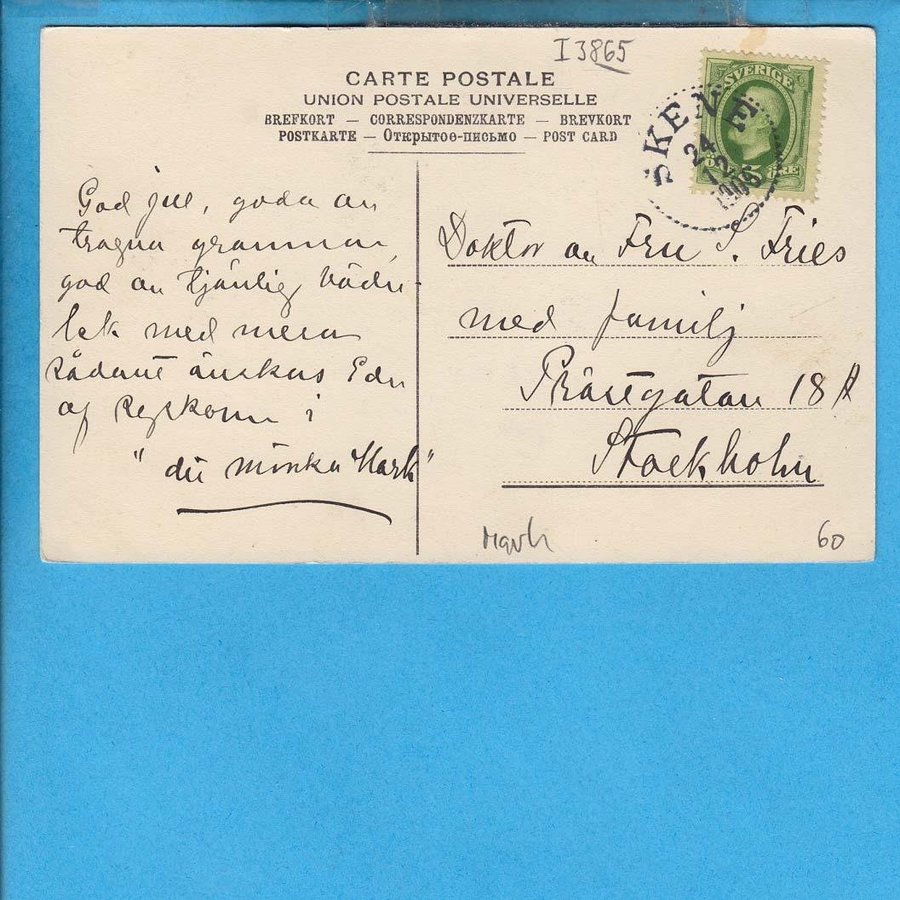 I 3865
CARTE POSTALE
UNION POSTALE UNIVERSELLE
BREFKORT — CORRESPONDENZKARTE — BREVKORT
POSTKARTE — Открытое-письмо — POST CARD
SVERIGE
5 ÖRE
SKENE
24
12
1906
God jul, goda an
trogna grannar,
god an tjänlig väder-
lek med mera
sådant önskas Eder
af
i
"du mörka Mark"
Doktor an Fru S. Fries
med familj
Prästgatan 18 A
Stockholm
Mark
60